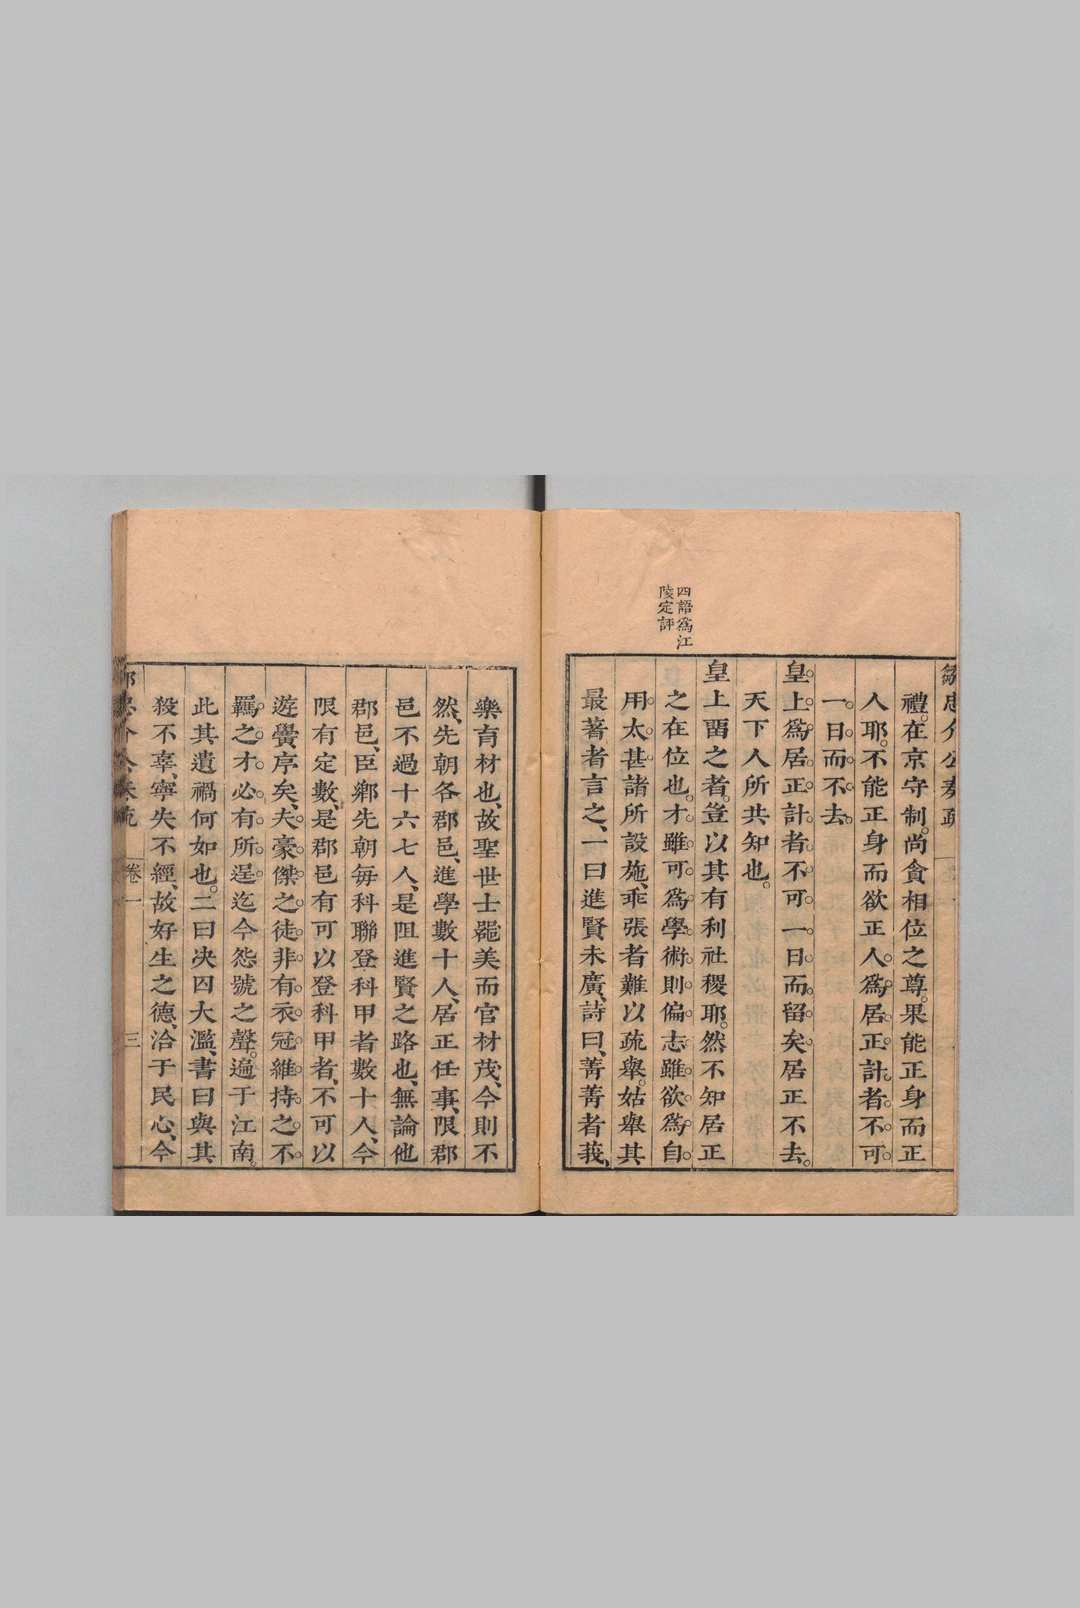 四語爲江
陵定評
鄒忠介公奏疏
禮。在京守制。尚貪相位之尊。果能正身而正
人耶。不能正身而欲正人。爲居正計者。不可
一日而不去
皇上爲居正計者。不可一日而留矣居正不去。
天下人所共知也。
皇上畱之者。豈以其有利社稷耶。然不知居正
之在位也。才雖可爲。學術則偏。志雖欲爲。自
用太甚。諸所設施、乖張者難以疏舉。姑舉其
最著者言之、一曰進賢未廣、詩曰、菁菁者莪、
樂育材也、故聖世士噐美而官材茂、今則不
然、先朝各郡邑、進學數十人、居正任事、限郡
邑不過十六七人、是阻進賢之路也、無論他
郡邑、臣鄉先朝毎科聯登科甲者數十人、今
限有定數、是郡邑有可以登科甲者、不可以
遊黌序矣、夫豪傑之徒。非有衣冠維持之。不
羈之才。必有所逞。迄今怨號之聲。遍于江南。
此其遺禍何如也。二曰决囚大濫、書曰與其
殺不辜、寧失不經、故好生之德、洽于民心、今
鄒忠介公奏疏
卷一
三